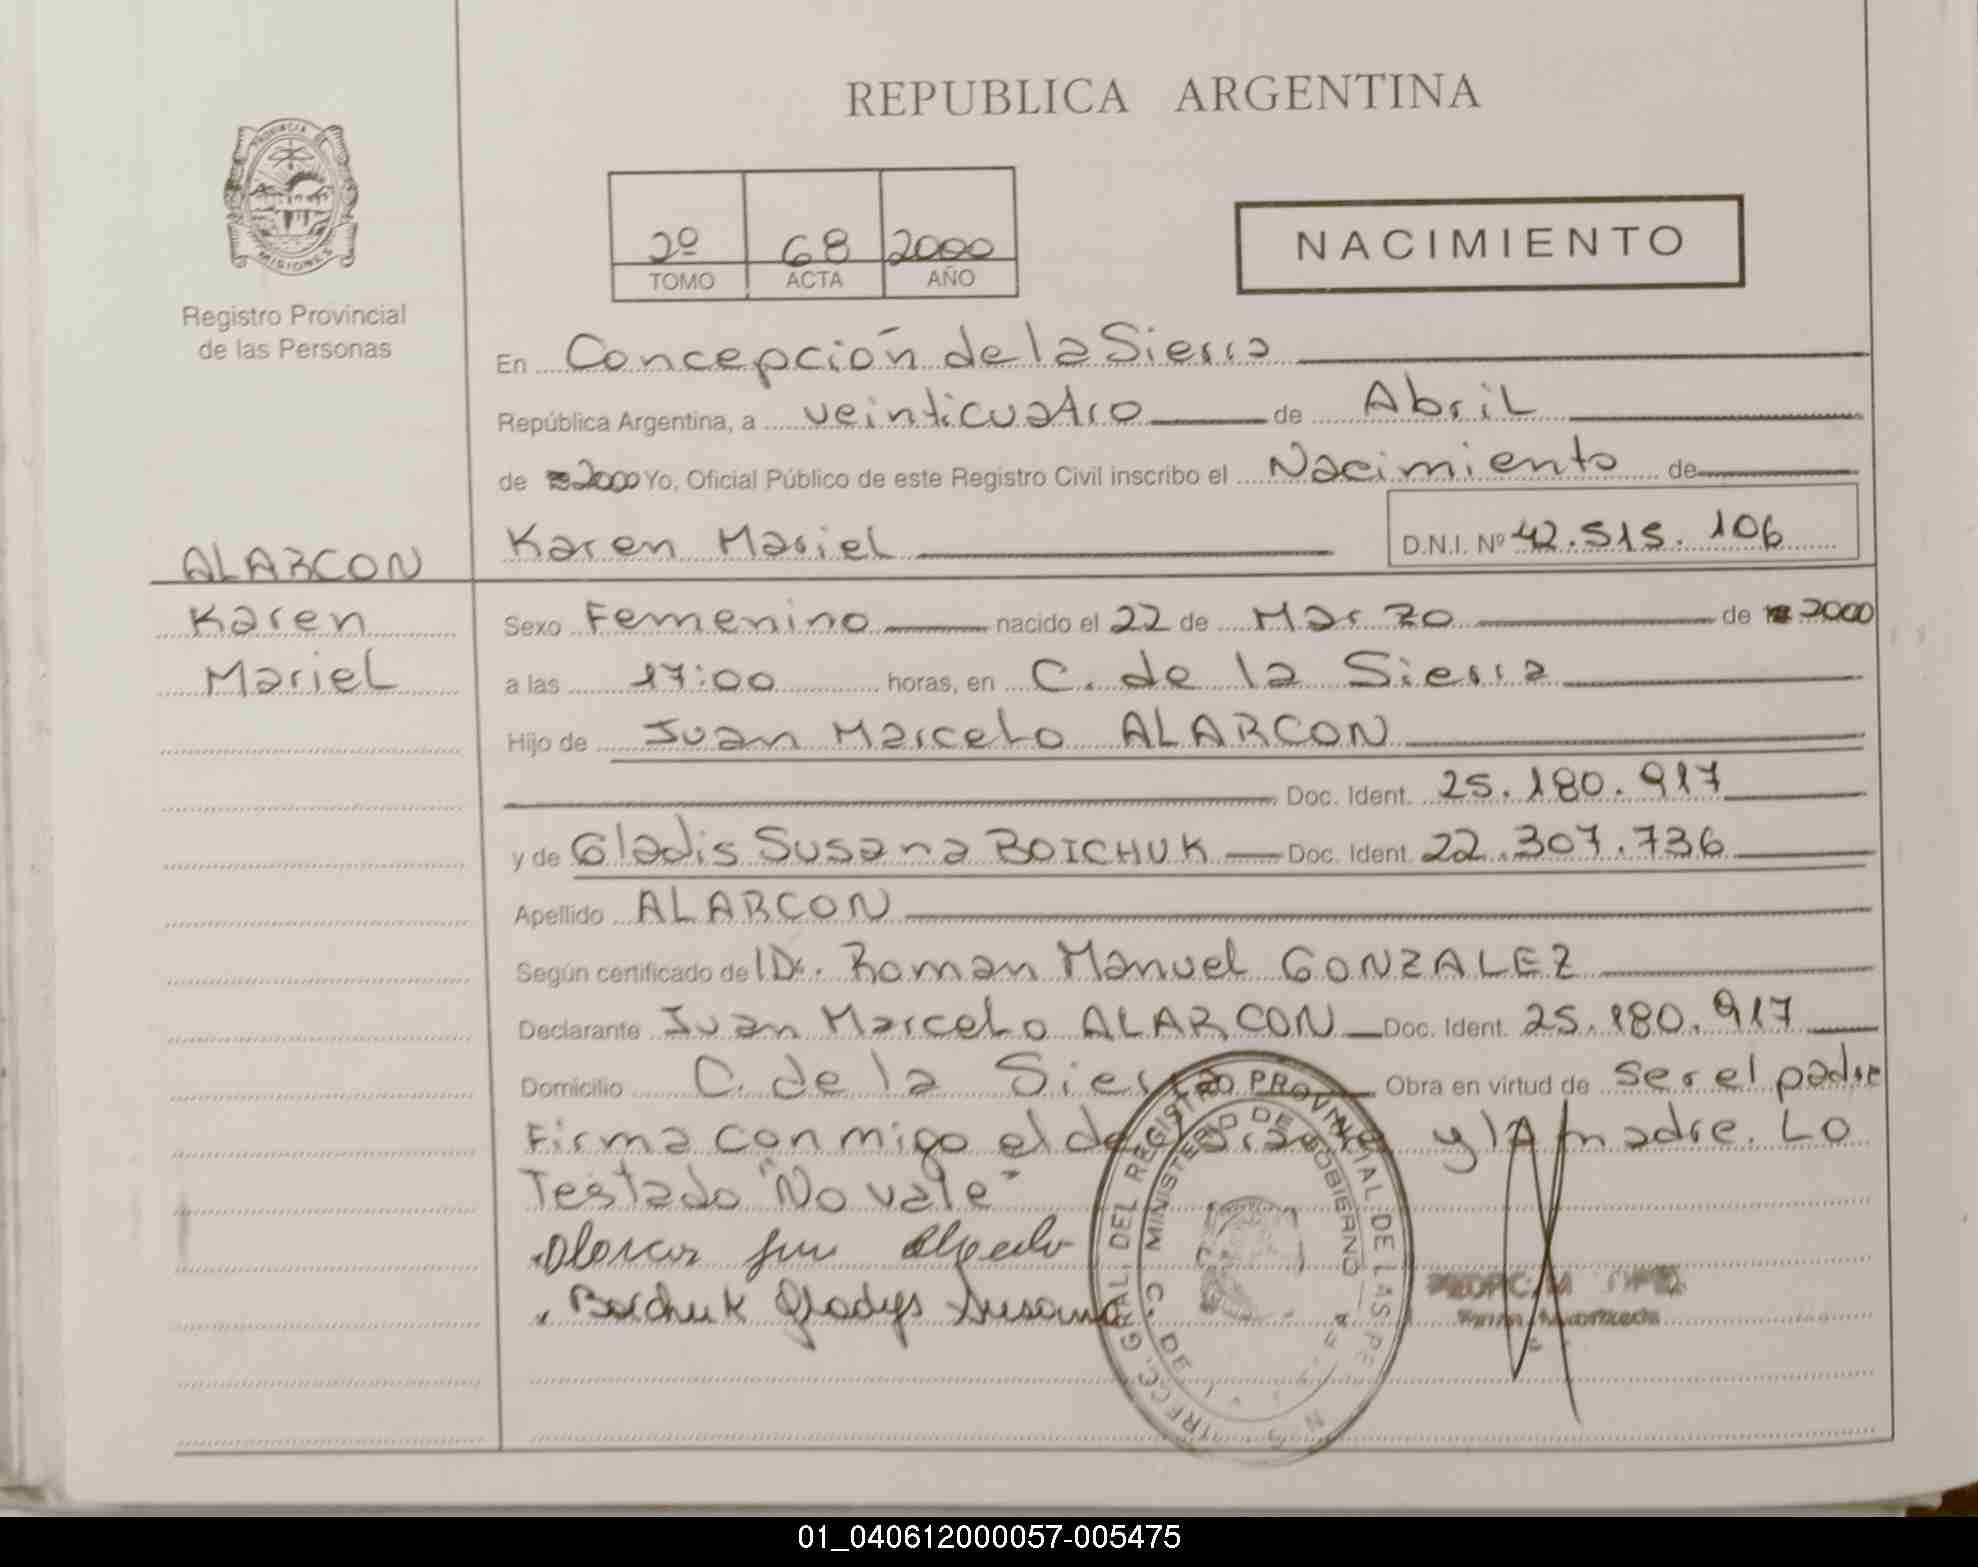 REPUBLICA ARGENTINA
PROVINCIA DE MISIONES
Registro Provincial
de las Personas
2º 68 2000
TOMO ACTA AÑO
NACIMIENTO
En Concepción de la Sierra
República Argentina, a veinticuatro de Abril
de 2000 Yo, Oficial Público de este Registro Civil inscribo el Nacimiento de
Karen Mariel D.N.I. Nº 42.515.106
ALARCON
Karen
Mariel
Sexo Femenino nacido el 22 de Marzo de 2000
a las 17:00 horas, en C. de la Sierra
Hijo de Juan Marcelo ALARCON
Doc. Ident. 25.180.917
y de Gladis Susana BOICHUK Doc. Ident. 22.307.736
Apellido ALARCON
Según certificado de Dr. Roman Manuel GONZALEZ
Declarante Juan Marcelo ALARCON Doc. Ident. 25.180.917
Domicilio C. de la Sierra Obra en virtud de ser el padre
Firma conmigo el declarante y la madre. Lo
Testado "No vale"
Boichuk Gladys Susana
DIRECC. GRAL. DEL REGISTRO PROVINCIAL DE LAS
MINISTERIO DE GOBIERNO
01_040612000057-005475